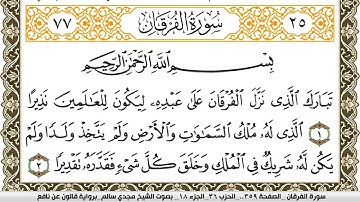 ٧٧ سُورَةُ الْفُرْقَانِ ٢٥
بِسْمِ اللَّهِ الرَّحْمَٰنِ الرَّحِيمِ
تَبَارَكَ الَّذِي نَزَّلَ الْفُرْقَانَ عَلَىٰ عَبْدِهِ لِيَكُونَ لِلْعَالَمِينَ نَذِيرًا
١ الَّذِي لَهُ مُلْكُ السَّمَاوَاتِ وَالْأَرْضِ وَلَمْ يَتَّخِذْ وَلَدًا وَلَمْ
يَكُن لَّهُ شَرِيكٌ فِي الْمُلْكِ وَخَلَقَ كُلَّ شَيْءٍ فَقَدَّرَهُ تَقْدِيرًا ٢
سورة الفرقان الصفحة ٣٥٩.. الحزب ٣٦ الجزء ١٨ بصوت الشيخ مجدي سالم برواية قالون عن نافع